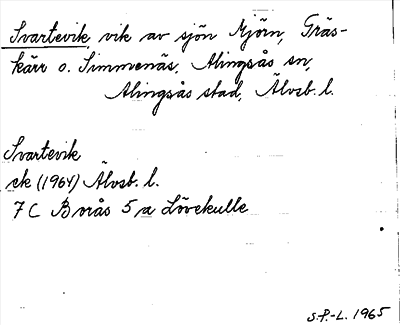 Svartevik, vik av sjön Mjörn, Gräs-
kärr o. Simmenäs, Alingsås sn,
Alingsås stad, Älvsb. l.
Svartevik
ek (1964) Älvsb. l.
7 C Borås 5 a Lövekulle
S.P.-L. 1965